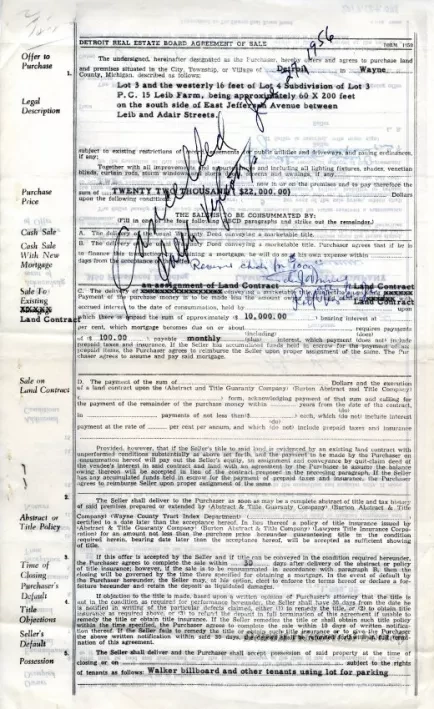 DETROIT REAL ESTATE BOARD AGREEMENT OF SALE
Offer to Purchase
1.
The undersigned, hereinafter designated as the Purchaser, hereby offers and agrees to purchase land
and premises situated in the City, Township, or Village of Detroit in Wayne
County, Michigan, described as follows:
Legal Description
Lot 3 and the westerly 16 feet of Lot 4 Subdivision of Lot 3
P.C. 15 Leib Farm, being approximately 60 X 200 feet
on the south side of East Jefferson Avenue between
Leib and Adair Streets.
1956
subject to existing restrictions of public utilities and driveways, and zoning ordinances,
if any;
Together with all improvements and including all lighting fixtures, shades, venetian
blinds, curtain rods, storm windows
now in or on the premises and to pay therefore the
Purchase Price
sum of TWENTY TWO THOUSAND ($22,000.00) Dollars
upon the following conditions
THE SALE IS TO BE CONSUMMATED BY:
(Fill in the four following ABCD paragraphs and strike out the remainder.)
Cash Sale
A. The delivery of the usual Warranty Deed conveying a marketable title.
Cash Sale With New Mortgage
B. The delivery of the usual Warranty Deed conveying a marketable title. Purchaser agrees that if he is
to finance this mortgage, he will do so at his own expense within
days from
an assignment of Land Contract Land Contract
Sale To Existing
XXXXX
Land Contract
C. The delivery of
Payment of the purchase money is to be made
accrued interest to the date of consummation, held by upon
which there is unpaid the sum of approximately $ 10,000.00 bearing interest at
per cent, which mortgage becomes due on or about requires payments
of $ 100.00 payable monthly interest, which payment (does not) include
prepaid taxes and insurance. If the Seller has accumulated funds held in escrow for the payment of any
prepaid items, the Purchaser agrees to reimburse the Seller upon proper assignment of the same. The Pur-
chaser agrees to assume and pay said mortgage.
Sale on Land Contract
D. The payment of the sum of Dollars and the execution
of a land contract upon the (Abstract and Title Guaranty Company) (Burton Abstract and Title Company)
form, acknowledging payment of that sum and calling for
the payment of the remainder of the purchase money within years from the date of contract,
in payments of not less than $ each, which (do not) include interest
payment at the rate of per cent per annum, and which (do not) include prepaid taxes and insurance
Provided, however, that if the Seller's title to said land is evidenced by an existing land contract with
unperformed conditions substantially as above set forth, and the payment to be made by the Purchaser on
consummation hereof will pay out the Seller's equity, an assignment and conveyance by quit-claim deed of
the vendee's interest in said contract and land with an agreement by the Purchaser to assume the balance
owing thereon will be accepted in lieu of the contract proposed in the preceding paragraph. If the Seller
has any accumulated funds held in escrow for the payment of prepaid taxes and insurance, the Purchaser
agrees to reimburse Seller upon proper assignment of the same
2.
Abstract or Title Policy
The Seller shall deliver to the Purchaser as soon as may be a complete abstract of title and tax history
of said premises prepared or extended by (Abstract & Title Guaranty Company) (Burton Abstract & Title
Company) (Wayne County Tract Index Department)
certified to a date later than the acceptance hereof. In lieu thereof a policy of title insurance issued by
(Abstract & Title Guaranty Company) (Burton Abstract & Title Company) (Lawyers Title Insurance Corpo-
ration) for an amount not less than the purchase price hereunder guaranteeing title in the condition
required herein, bearing date later than the acceptance hereof, will be accepted as sufficient showing
of title.
3.
Time of Closing
Purchaser's Default
If this offer is accepted by the Seller and if title can be conveyed in the condition required hereunder,
the Purchaser agrees to complete the sale within 30 days after delivery of the abstract or policy
of title insurance; however, if the sale is to be consummated in accordance with paragraph B, then the
closing will be governed by the time there specified for obtaining a mortgage. In the event of default by
the Purchaser hereunder, the Seller may, at his option, elect to enforce the terms hereof or declare a for-
feiture hereunder and retain the deposit as liquidated damages.
4.
Title Objections
Seller's Default
If objection to the title is made, based upon a written opinion of Purchaser's attorney that the title is
not in the condition as required for performance hereunder, the Seller shall have 30 days from the date he
is notified in writing of the particular defects claimed, either (1) to remedy the title, or (2) to obtain title
insurance as required above, or (3) to refund the deposit in full termination of this agreement if unable to
remedy the title or obtain title insurance. If the Seller remedies the title or shall obtain such title policy
within the time specified, the Purchaser agrees to complete the sale within 10 days of written notifica-
tion thereof. If the Seller fails to remedy the title or obtain such title insurance or to give the Purchaser
the above written notification within said 30 days,
nation of this agreement.
5.
Possession
The Seller shall deliver and the Purchaser shall accept possession of said property at the time of
closing or on subject to the rights
of tenants as follows: Walker billboard and other tenants using lot for parking